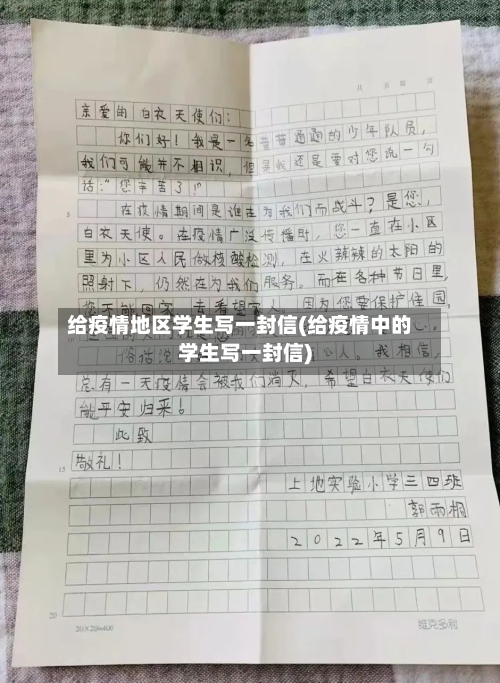 共 页 第 页
亲爱的白衣天使们：
你们好！我是一名普普通通的少年队员，
我们可能并不相识，但是我还是要对您说一句
话："您辛苦了！"
5 在疫情期间是谁在为我们而战斗？是您，
白衣天使。在疫情广泛传播时，您一直在小区
里为小区人民做核酸检测，在火辣辣的太阳的
照射下，仍然在为我们服务。而在各种节日里，
您不能回家，去看望家人，因为您要保护住园，
给疫情地区学生写一封信(给疫情中的
学生写一封信)
俗话说 人。我相信，
总有一天疫情会被我们消灭，希望白衣天使们
能平安归来。
此致
15 敬礼！
上地实验小学三四班
郭雨桐
2022年5月9日
20
20×20=400 维克多利